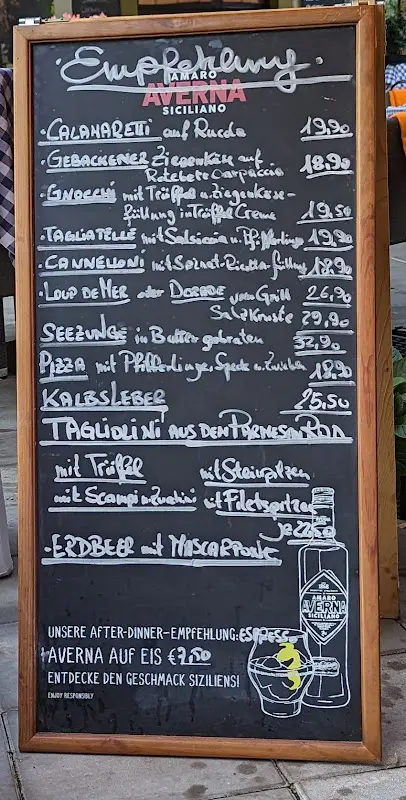 Empfehlung.
AMARO
AVERNA
SICILIANO
·CALAMARETTI auf Rucola 19,90
·GEBACKENER Ziegenkäse auf
Rotebete Carpaccio 18,90
·GNOCCHI mit Trüffel u. Ziegenkäse-
füllung in Trüffel Creme 19,50
·TAGLIATELLE mit Salsiccia u. Pfifferlinge 19,90
·CANNELLONI mit Spinat-Ricotta-füllung 18,90
·LOUP DE MER oder DORADE vom Grill 26,90
Salzkruste 29,90
SEEZUNGE in Butter gebraten 32,90
PIZZA mit Pfifferlinge, Speck u. Zwiebeln 18,90
KALBSLEBER 25,50
TAGLIOLINI AUS DEM PARMESAN RAD
mit Trüffel mit Steinpilzen
mit Scampi u. Zucchini mit Filetspitzen
je 22,50
·ERDBEER mit MASCARPONE
AMARO
AVERNA
SICILIANO
UNSERE AFTER-DINNER-EMPFEHLUNG: ESPRESSO
AVERNA AUF EIS €7,50
ENTDECKE DEN GESCHMACK SIZILIENS!
ENJOY RESPONSIBLY